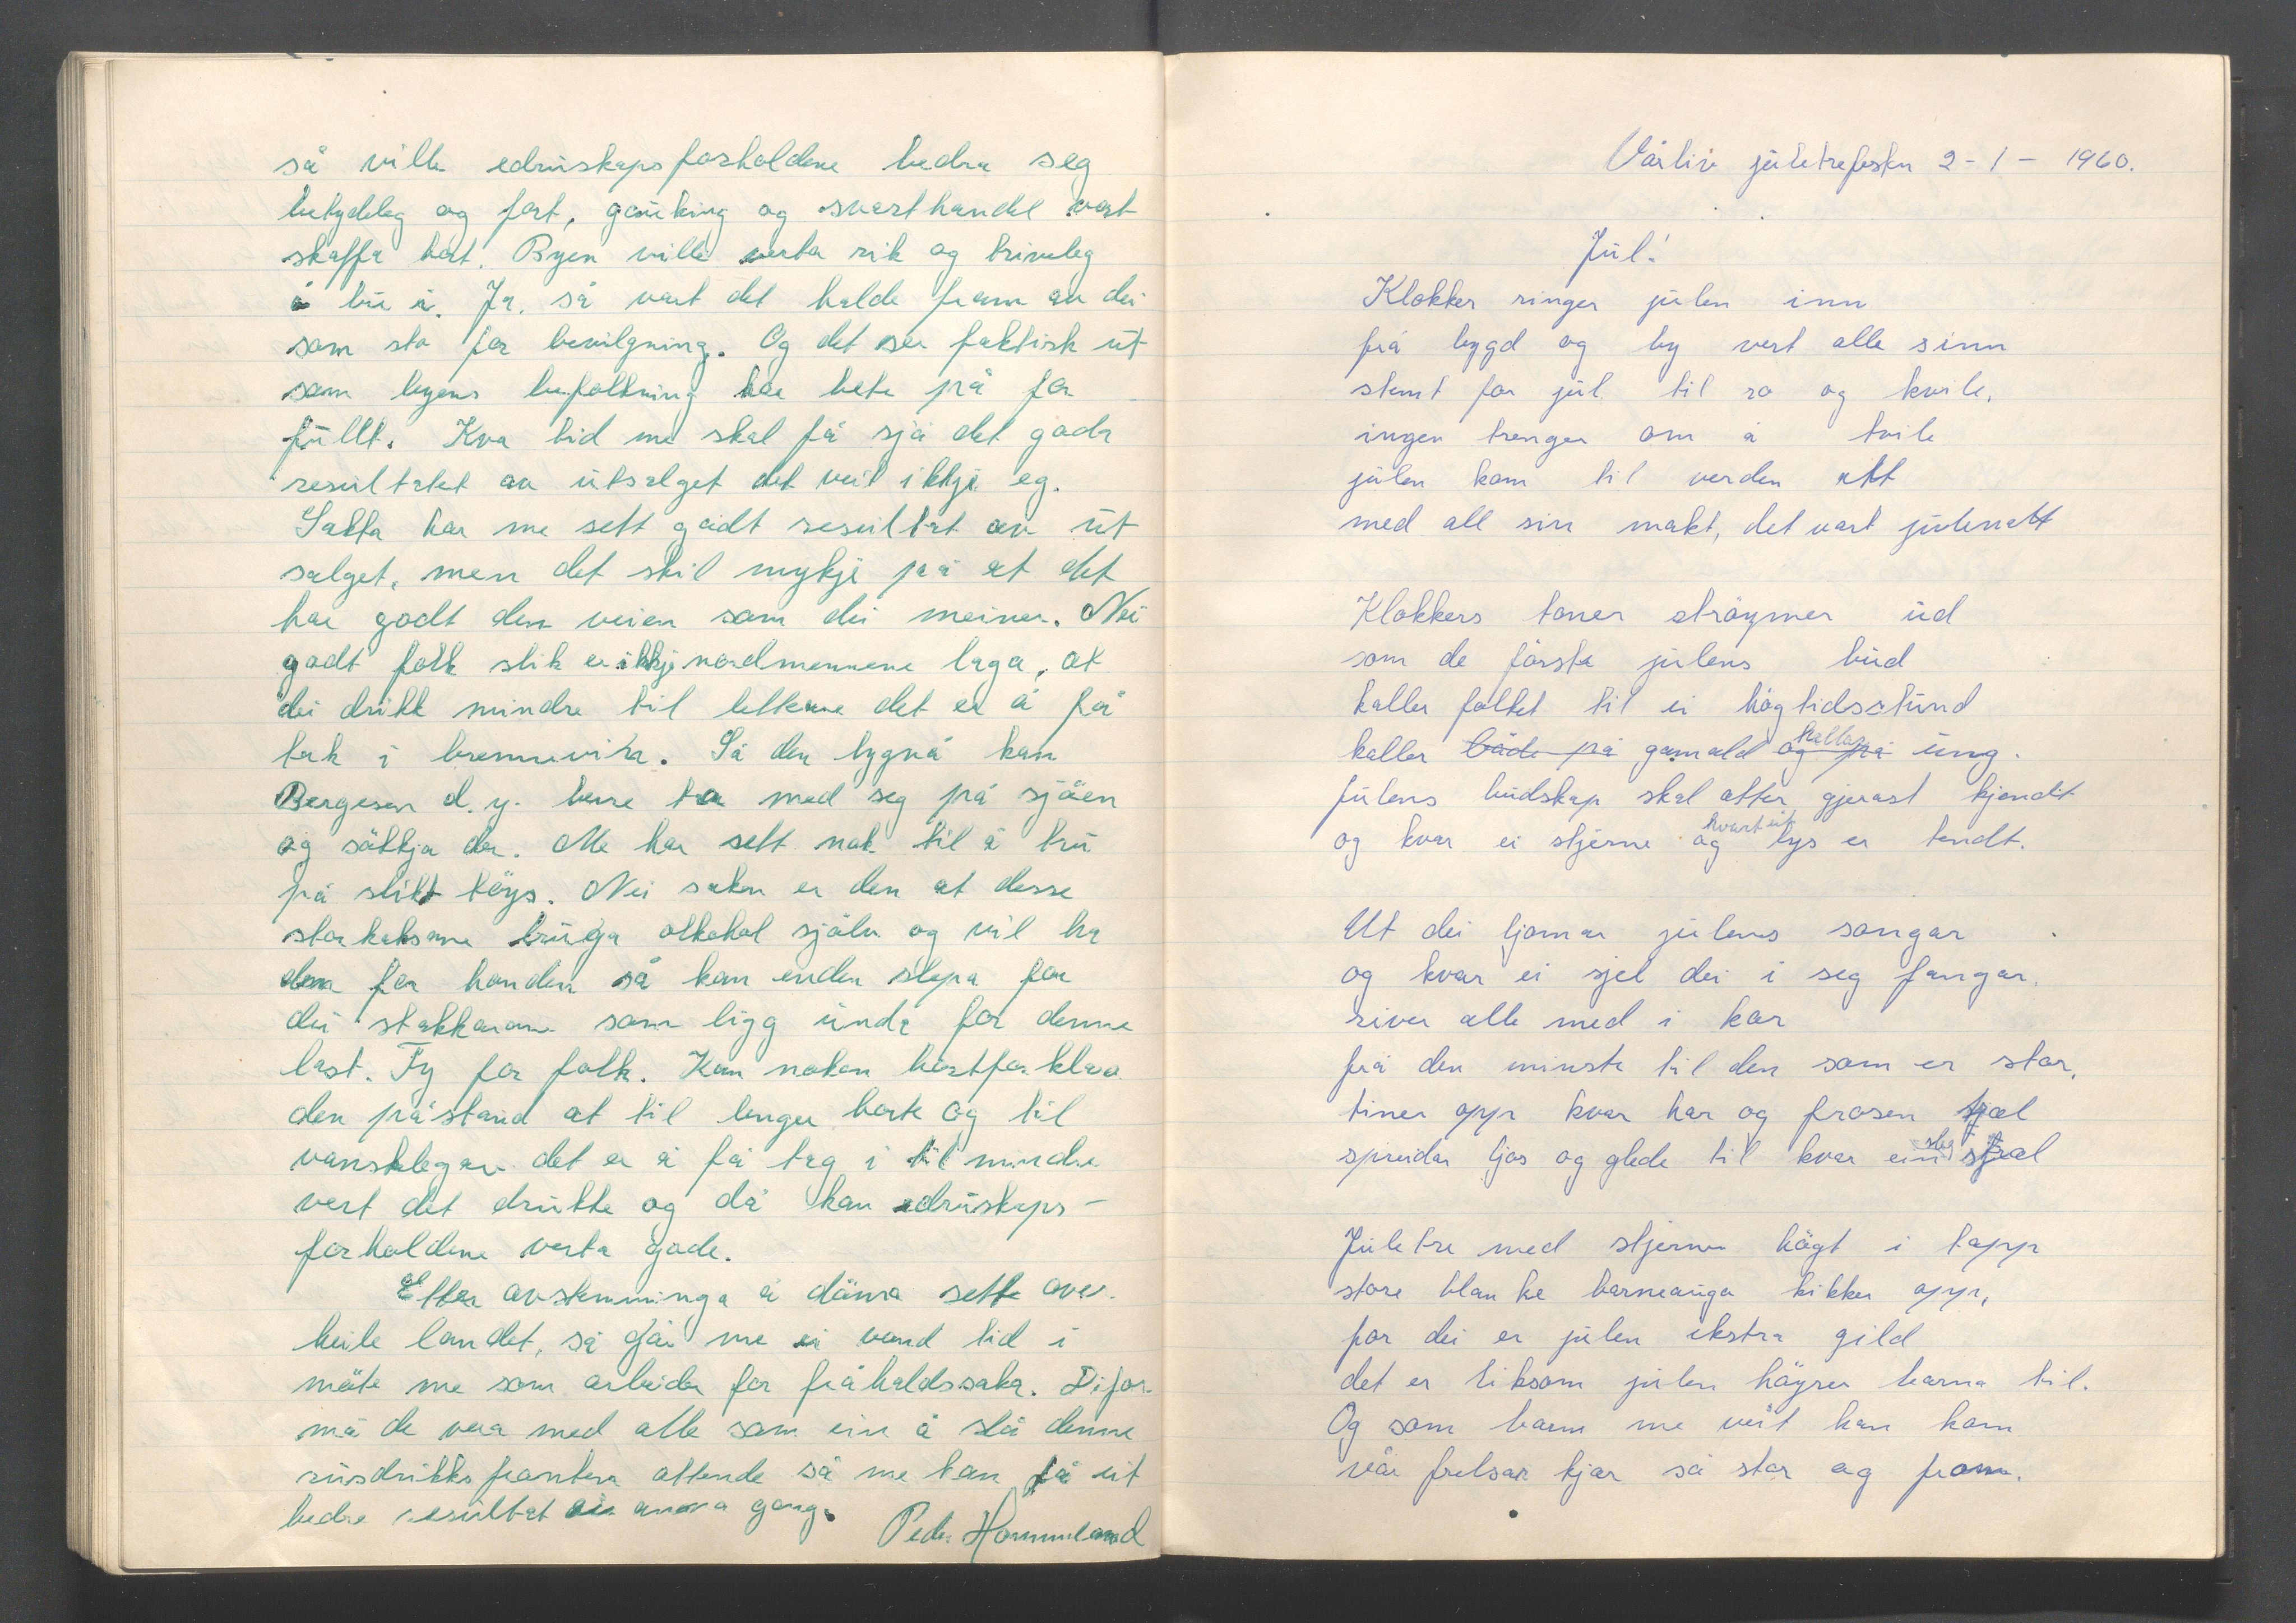 så ville edruskapsforholdene bedra seg
betydeleg og fort, gauking og svarthandel vart
skaffa bort. Byen ville verta rik og triveleg
å bu i. Ja, så vart det halde fram av dei
som sto for bevilgning. Og det ser faktisk ut
som byens befolkning har bete på for
fullt. Kva tid me skal få sjå det goda
resultatet av utsalget det veit ikkje eg.
Sakta har me sett godt resultat av ut
salget, men det skil mykje på at det
har godt den veien som dei meiner. Nei
godt folk slik er ikkje nordmennene laga, at
dei drikk mindre til lettare det er å få
tak i brennevin. Så den lygna kan
Bergesen d.y. berre ta med seg på sjøen
og säkkja der. Me har sett nok til å tru
på slikt töys. Nei saken er den at desse
storkaksane bruga alkohol själv og vil ha
den for handen så kan enden slepa for
dei stakkarane som ligg under for denne
last. Fy for folk. Kan nokon bortforklara
den påstand at til lenger borte og til
vanskelegare det er å få tag i til mindre
vert det drukke og då kan edruskaps-
forholdene verta gode.
Etter avstemminga å döma sett over
heile landet, så går me ei vond tid i
möte me som arbeider for fråhaldssaka. Difor
må de vera med alle som ein å slå denne
rusdrikksfronten attende så me kan få eit
bedre resultat ein anna gong.
Peder Hommeland
Vårliv juletrefesten 2-1-1960.
Jul!
Klokker ringer julen inn
frå bygd og by vert alle sinn
stemt for jul til ro og kvile,
ingen trenger om å tvile
julen kom til verden att
med all sin makt, det vart julenatt
Klokkers toner ströymer ud
som de första julens bud
kaller folket til ei högtidsstund
kaller både på gamald og på kallar ung.
Julens budskap skal atter gjerast kjendt
og kvar ei stjerne og kvart eit lys er tendt.
Ut dei ljomar julens songar
og kvar ei sjel dei i seg fangar.
river alle med i kor
frå den minste til den som er stor,
tiner opp kvar har og frosen sjæl
spreidar ljos og glede til kvar ein
Juletre med stjerner högt i topp
store blanke barneauga kikker opp,
for dei er julen ekstra gild
det er liksom julen höyrer barna til.
Og som barn me veit han kom
vår frelsar kjær så stor og from.